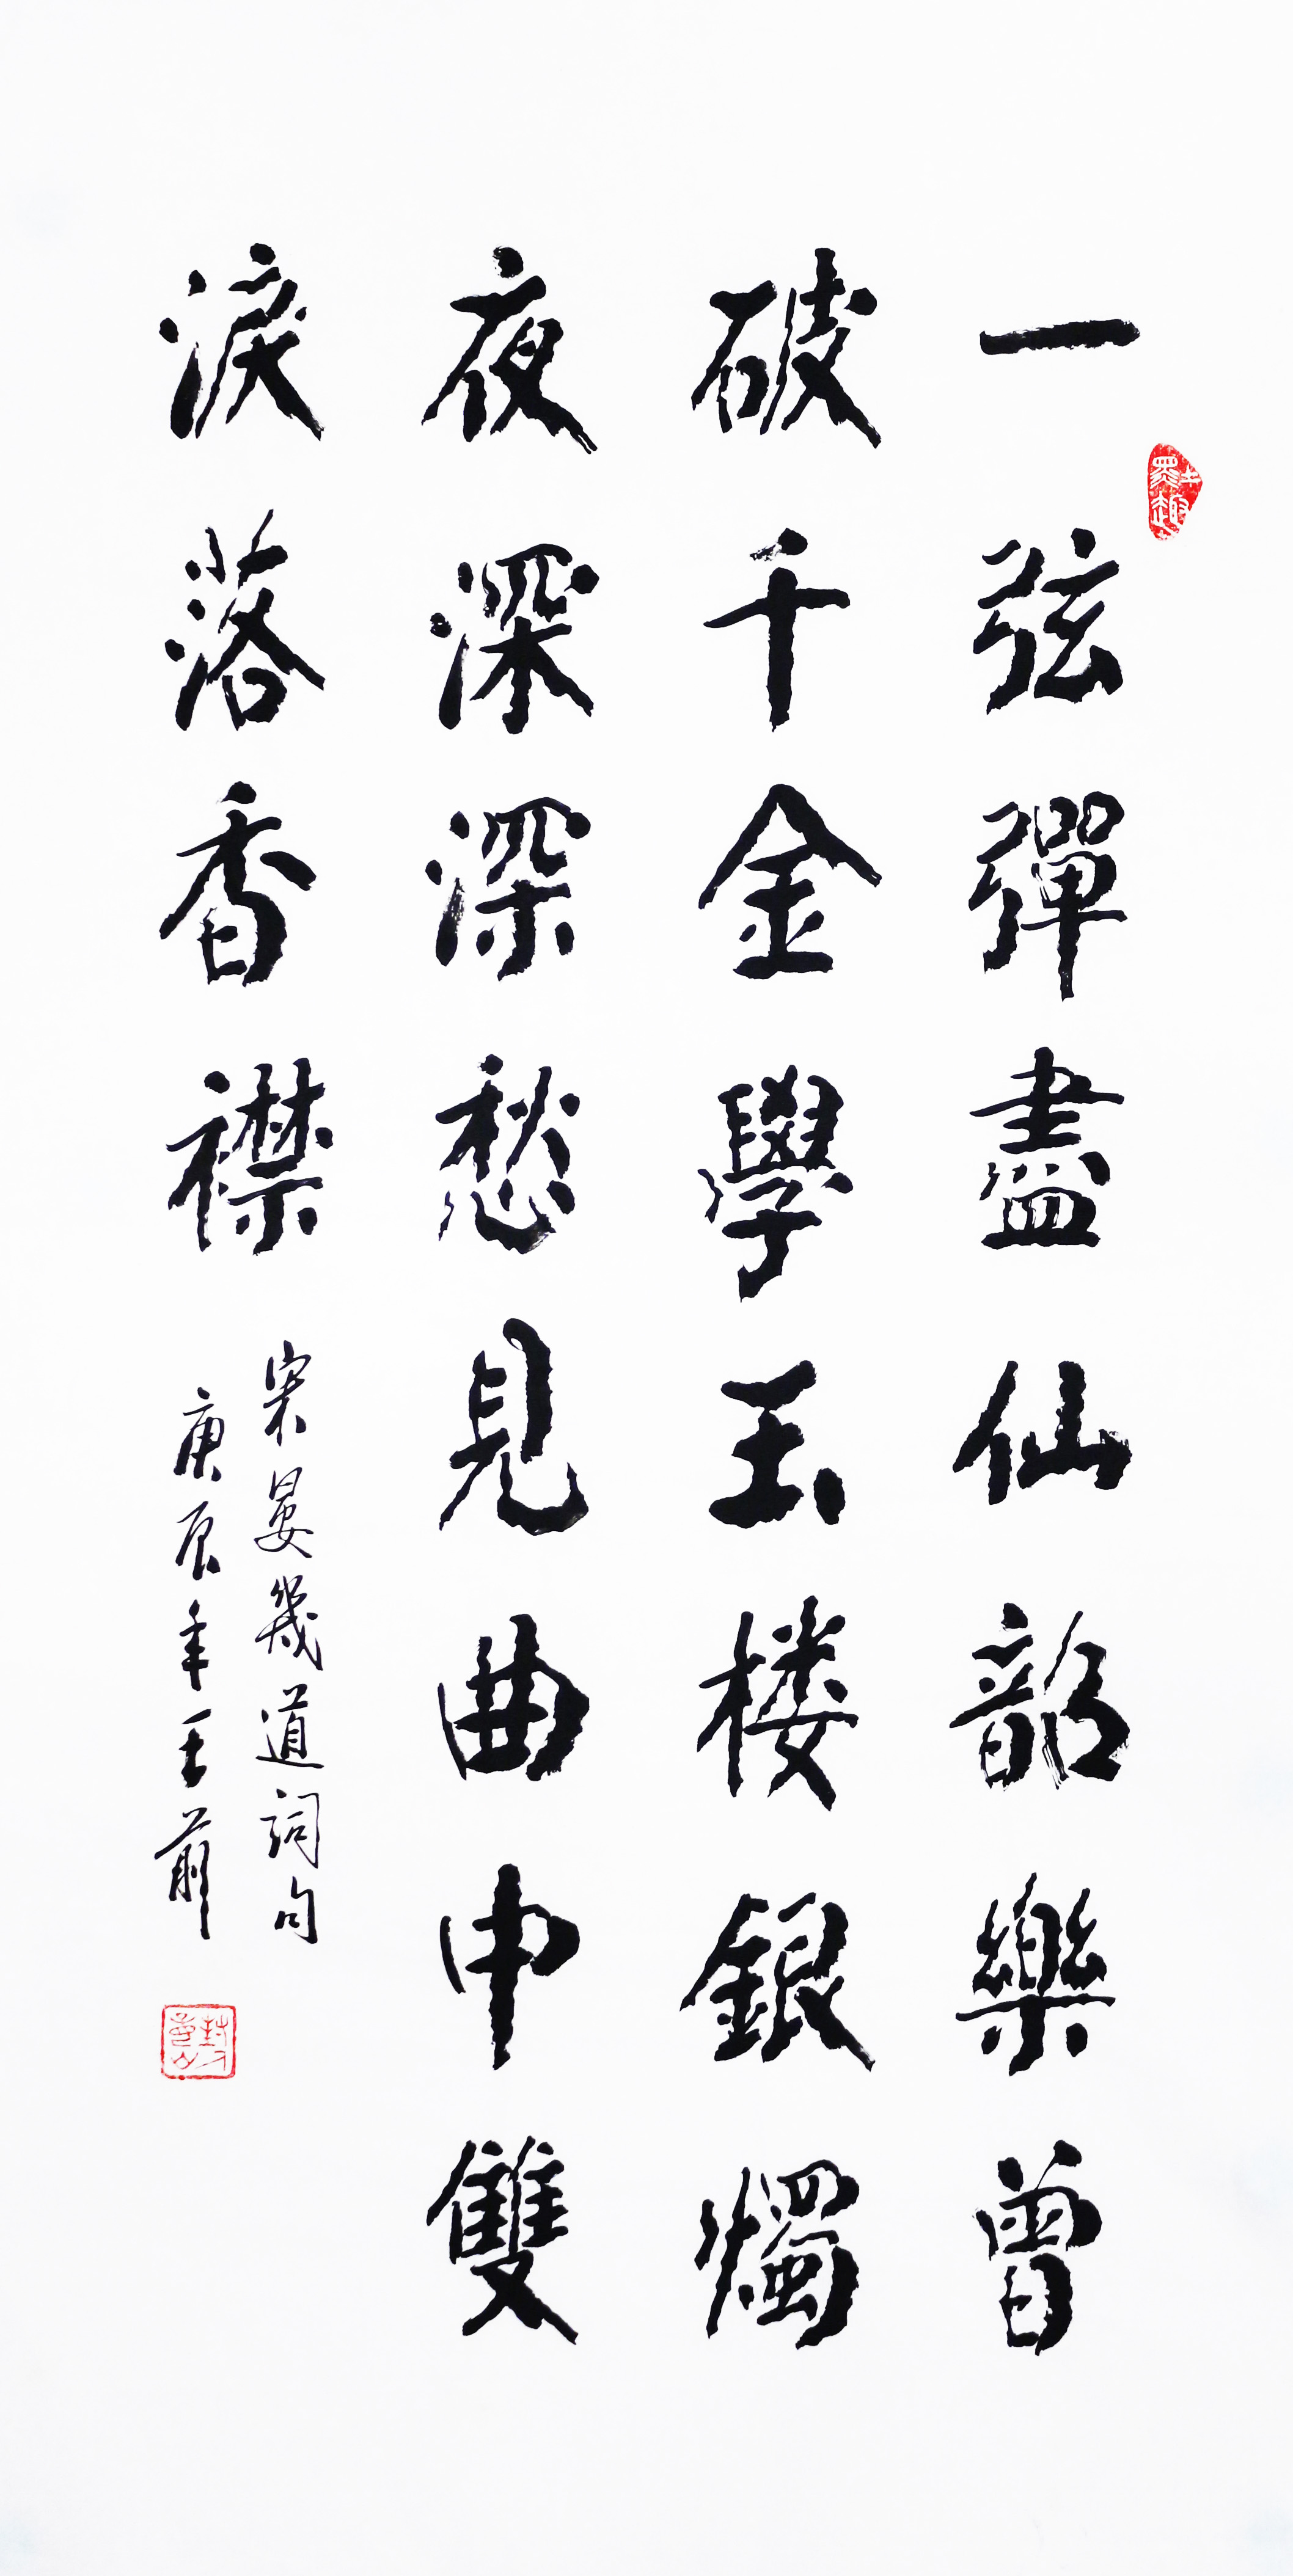 一弦彈盡仙韶樂曾
破千金學玉楼銀燭
夜深深愁見曲中雙
淚落香襟
宋晏幾道詞句
庚辰年王前
墨趣